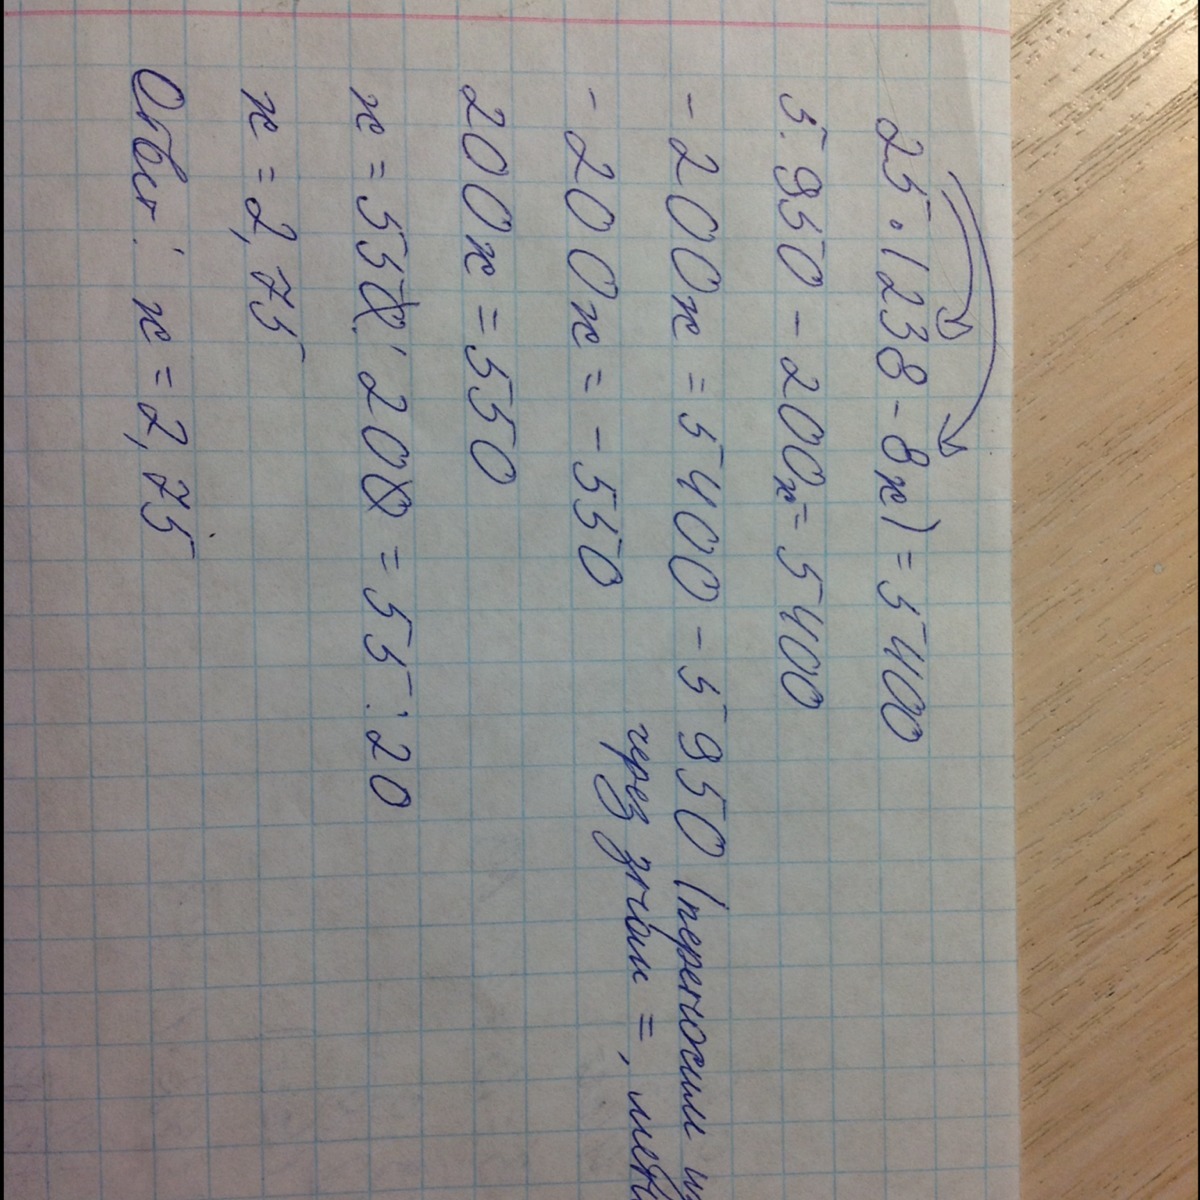 25·(238-8x)=5400
5950-200x=5400
-200x=5400-5950 (переносим
через знак =,
-200x=-550
200x=550
x=550:200=55:20
x=2,75
Ответ: x=2,75